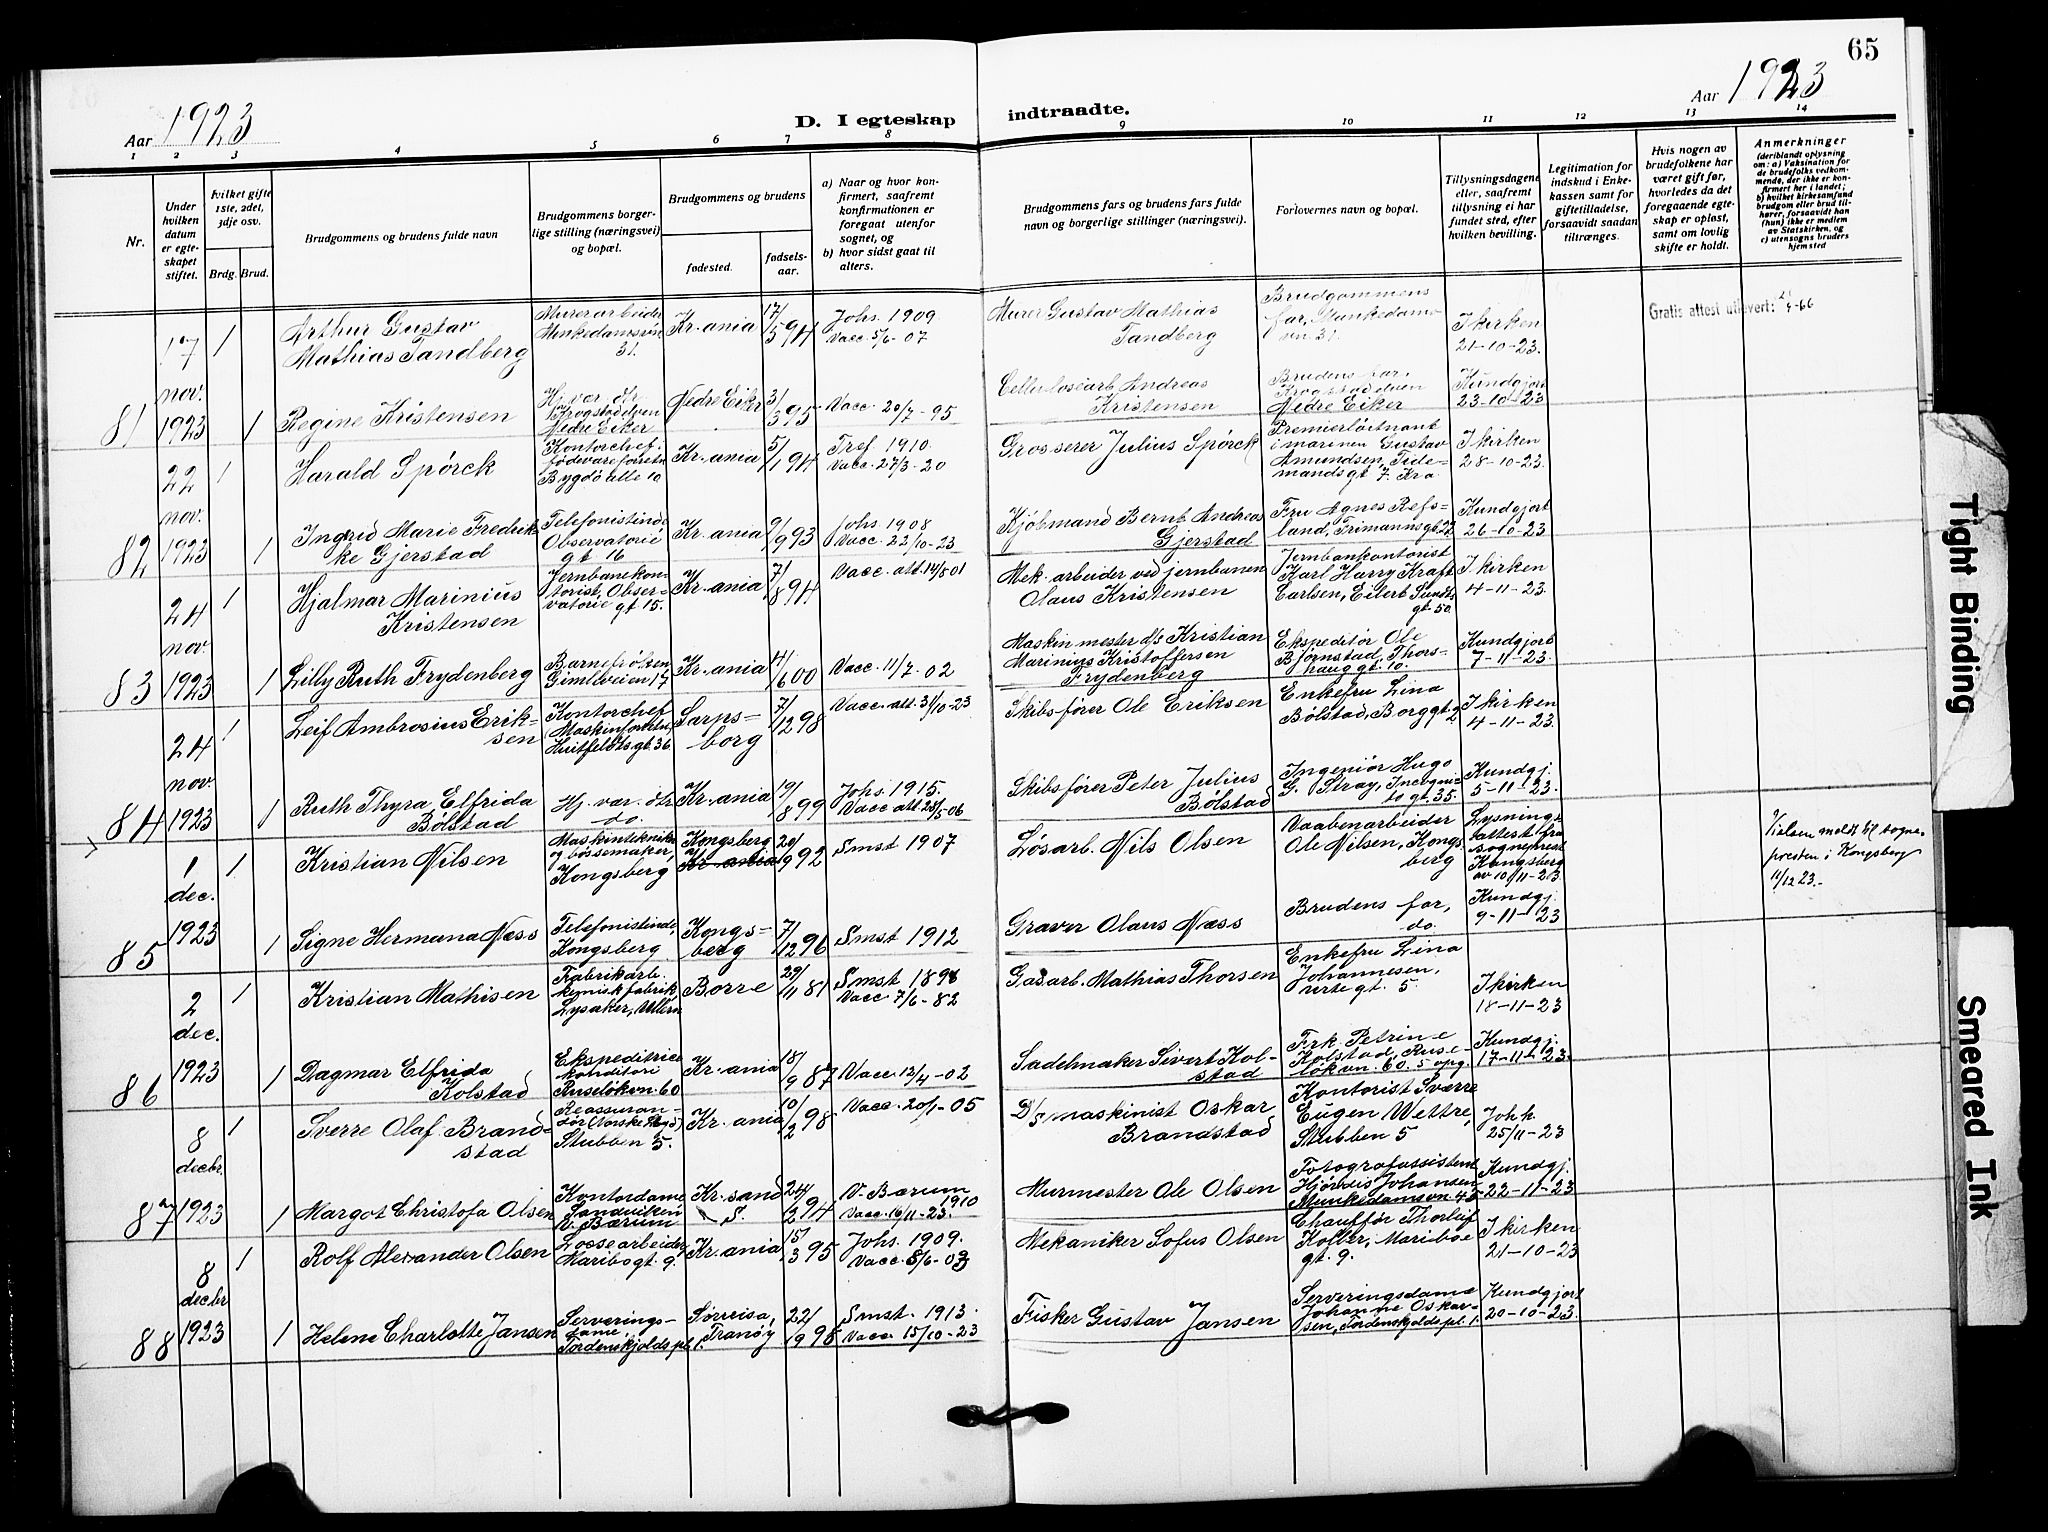 65
Aar 1923
D. I egteskap
indtraadte.
Aar 1923
1 2 3 4 5 6 7 8 9 10 11 12 13 14
Nr.
Under hvilken datum er egteskapet stiftet.
hvilket gifte 1ste, 2det, 3dje osv.
Brdg. Brud.
Brudgommens og brudens fulde navn
Brudgommens borgerlige stilling (næringsvei) og bopæl.
Brudgommens og brudens
fødested.
fødselsaar.
a) Naar og hvor konfirmert, saafremt konfirmationen er foregaat utenfor sognet, og
b) hvor sidst gaat til alters.
Brudgommens fars og brudens fars fulde navn og borgerlige stillinger (næringsvei).
Forlovernes navn og bopæl.
Tillysningsdagene eller, saafremt tillysning ei har fundet sted, efter hvilken bevilling.
Legitimation for indskud i Enkekassen samt for giftetilladelse, forsaavidt saadan tiltrænges.
Hvis nogen av brudefolkene har været gift før, hvorledes da det foregaaende egteskap er opløst, samt om lovlig skifte er holdt.
Anmerkninger
(deriblandt oplysning om: a) Vaksination for de brudefolks vedkommende, der ikke er konfirmert her i landet; b) hvilket kirkesamfund brudgom eller brud tilhører, forsaavidt han (hun) ikke er medlem av Statskirken, og c) utensogns bruders hjemsted
81
17 nov. 1923
1
Arthur Gustav Mathias Tandberg
Murerarbeider Munkedamsvn. 31.
Kr.ania
17/5 94
Johs. 1909.
Vacc. 5/6-07
Murer Gustav Mathias Tandberg
Brudgommens far, Munkedamsvn 31.
I kirken 21-10-23.
Gratis attest utlevert: 4-66
1
Regine Kristensen
Hj. vær. d.r. Krogstadelven Nedre Eiker
Nedre Eiker
3/3 95
Vacc. 20/7-95
Cellulosearb. Andreas Kristensen
Brudens far, Krogstadelven Nedre Eiker
Kundgjort 23-10-23
82
22 nov. 1923
1
Harald Spørck
Kontorchef. fødevareforretn. Bygdø alle 10
Kr.ania
5/1 94
Tref. 1910.
Vacc. 27/3-20
Grosserer Julius Spørck
Premierløitnant i marinen Gustav Amundsen, Tidemandsgt 7. Kra
I kirken 28-10-23.
1
Ingrid Marie Fredrikke Gjerstad
Telefonistinde Observatorie gt 16
Kr.ania
9/9 93
Johs 1908
Vacc. 22/10-23
Kjøbmand Bernt Andreas Gjerstad
Fru Agnes Refsland, Trimannsgt. 22
Kundgjort 26-10-23
83
24 nov. 1923
1
Hjalmar Marinius Kristensen
Jernbanekontorist, Observatorie gt. 15.
Kr.ania
7/8 94
Vacc. att. 14/8 01
Mek. arbeider ved jernbanen Olaus Kristensen
Jernbankontorist Karl Harry Kraft Carlsen, Eilert Sundts gt. 50.
I kirken 4-11-23.
1
Lilly Ruth Frydenberg
Barnefrøken Gimleveien 17
Kr.ania
4/6 00
Vacc. 11/7-02
Maskinmester d/s Kristian Marinius Kristoffersen Frydenberg
Ekspeditør Ole Bjørnstad, Thorshauggt. 10.
Kundgjort 7-11-23.
84
24 nov. 1923
1
Leif Ambrosius Eriksen
Kontorchef (Maskinforretn) Huitfeldts gt. 36
Sarpsborg
7/12 98
Vacc. att. 31/10-23
Skibsfører Ole Eriksen
Enkefru Lina Bølstad, Borggt. 2
I kirken 4-11-23.
1
Ruth Thyra Elfrida Bølstad
Hj. vær. dtr. do.
Kr.ania
19/8 99
Johs. 1915.
Vacc att. 28/5-06
Skibsfører Peter Julius Bølstad
Ingeniør Hugo G. Stray, Incognito gt. 35.
Kundgj. 5-11-23.
85
1 dec. 1923
1
Kristian Nilsen
Maskintekniker og bøssemaker, Kongsberg
Kongsberg Kr.ania
20/9 92
Smst 1907
Løsarb. Nils Olsen
Vaabenarbeider Ole Nilsen, Kongsberg
Lysningsattest fra sogneprest Kongsberg av 10/11-23.
Vielsen meldt til sognepresten i Kongsberg 11/12 23.-
1
Signe Hermana Næss
Telefonistinde, Kongsberg
Kongsberg
7/12 96
Smst 1912
Graver Olaus Næss
Brudens far, do.
Kundgj. 9-11-23
86
2 dec. 1923
1
Kristian Mathisen
Fabrikarb. kemisk fabrik, Lysaker, Ullern
Borre
29/11 81
Smst 1896
Vacc 7/6-82
Gadarb. Mathias Thorsen
Enkefru Lina Johannesen, Urtegt. 5
I kirken 18-11-23
1
Dagmar Elfrida Kolstad
Ekspeditrice konditori Ruseløkvn. 60
Kr.ania
18/9 87
Vacc. 12/4-02
Sadelmaker Sivert Kolstad
Frk. Petrine Kolstad, Ruseløkvn. 60. 5 opg.
Kundgj. 17-11-23.
87
8 decbr. 1923
1
Sverre Olaf Brandstad
Stubben 5.
Kr.ania
10/2 98
Vacc. 20/1-05
D/s maskinist Oskar Brandstad
Kontorist Sverre Eugen Wettre, Stubben 5
Joh k. 25/11-23
1
Margot Christofa Olsen
Kontordame Sandviken V. Bærum
Kr.sand S.
24/2 94
V. Bærum 1910
Vacc. 16/11-23.
Murmester Ole Olsen
Fotografassistent Hjørdis Johansen Munkedamsvn 45
Kundgj. 22-11-23
88
8 decbr 1923
1
Rolf Alexander Olsen
Lossearbeider, Maribogt. 9.
Kr.ania
15/3 95
Johs. 1909.
Vacc. 8/6-03
Mekaniker Sofus Olsen
Chauffør Thorleif Koller, Mariboe gt. 9.
I kirken 21-10-23
1
Helene Charlotte Jansen
Serveringsdame, Tordenskjoldspl. 1.
Sørreisa, Tranøy
22/9 98
Smst. 1913.
Vacc. 15/10-23
Fisker Gustav Jansen
Serveringsdame Johanne Oskarsen, Tordenskjolds pl. 1.
Kundgjort 20-10-23.
Tight Binding
Smeared Ink